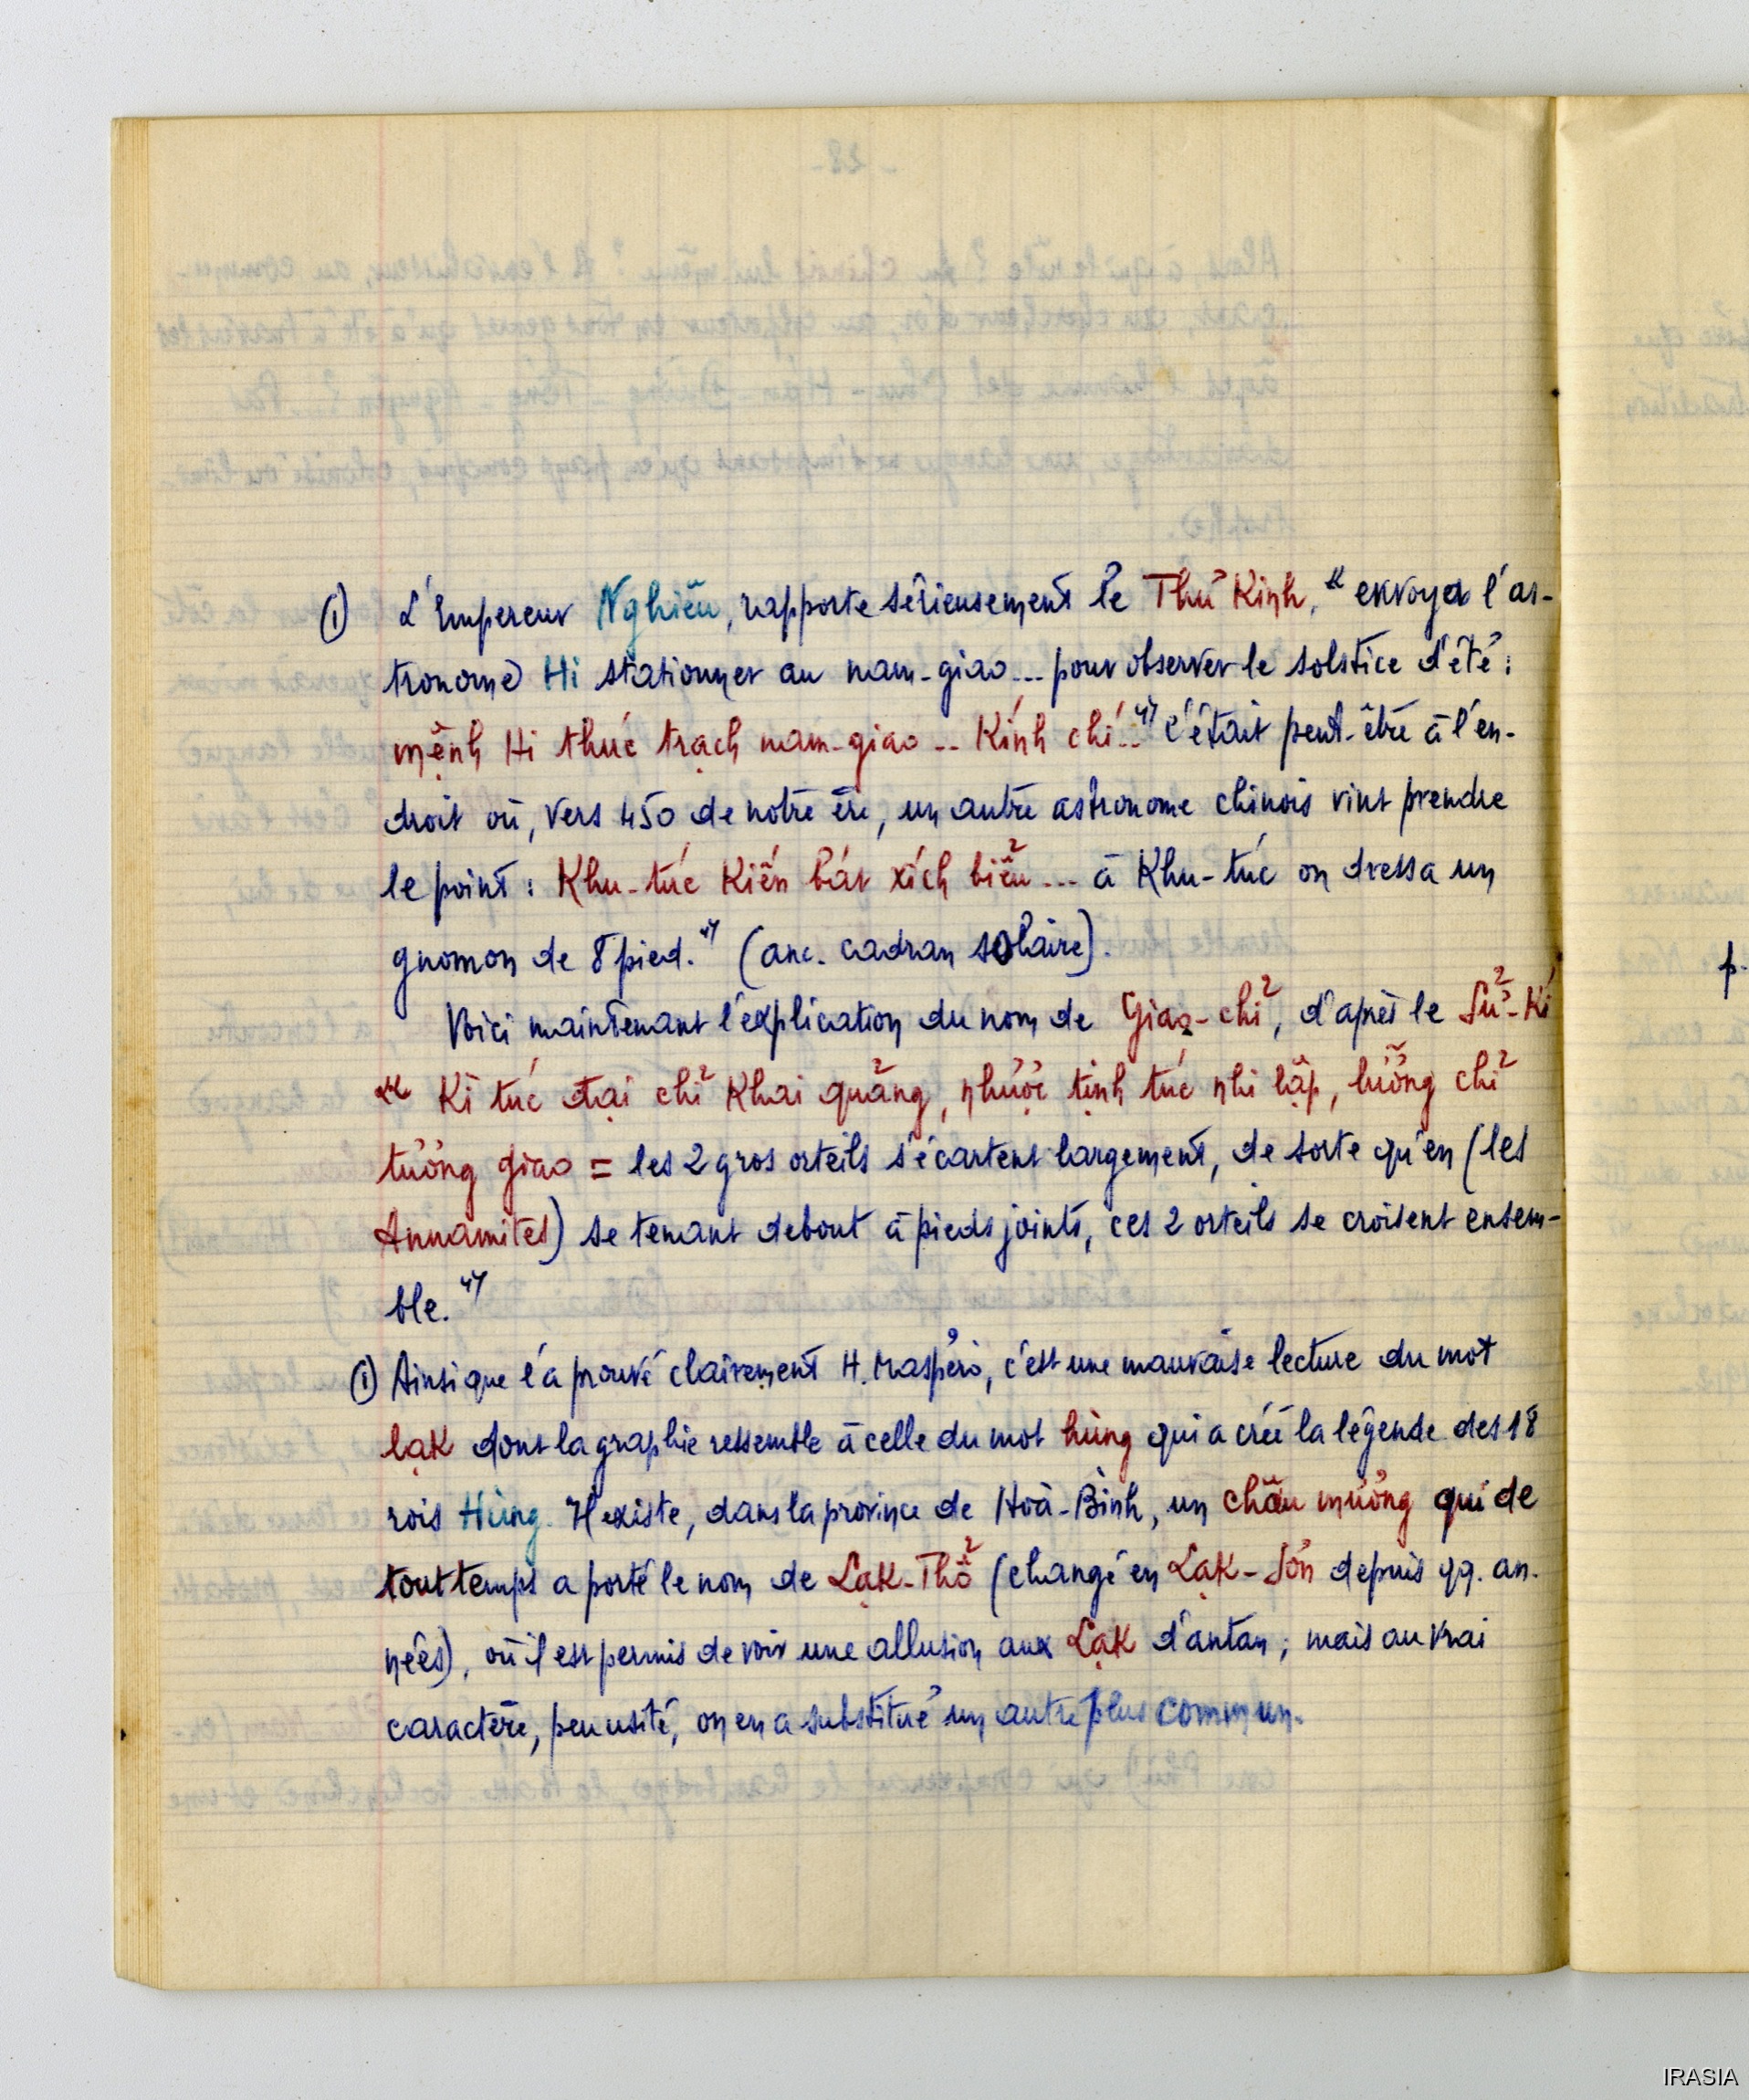 (1) L'Empereur Nghiêu, rapporte sérieusement le Thư Kinh, "envoya l'as-
tronome Hi stationner au nam-giao... pour observer le solstice d'été:
mệnh Hi thúc trạch nam-giao... Kính chí..." c'était peut-être à l'en-
droit où, vers 450 de notre ère, un autre astronome chinois vint prendre
le point: Khu-túc Kiến bát xích biểu... à Khu-túc on dressa un
gnomon de 8 pied." (anc. cadran solaire).
Voici maintenant l'explication du nom de Giao-chỉ, d'après le Sử-Kí
"Kì túc đại chỉ Khai quảng, nhược tịnh túc nhi lập, lưỡng chỉ
tương giao = les 2 gros orteils s'écartent largement, de sorte qu'en (les
Annamites) se tenant debout à pieds joints, ces 2 orteils se croisent ensem-
ble."
(1) Ainsi que l'a prouvé clairement H. Maspéro, c'est une mauvaise lecture du mot
lạk dont la graphie ressemble à celle du mot hùng qui a créé la légende des 18
rois Hùng. Il existe, dans la province de Hoà-Bình, un châu mường qui de
tout temps a porté le nom de Lạk-Thổ (changé en Lạk-Sơn depuis qq. an-
nées), où il est permis de voir une allusion aux Lạk d'antan; mais au vrai
caractère, peu usité, on en a substitué un autre plus commun.
p.
IRASIA